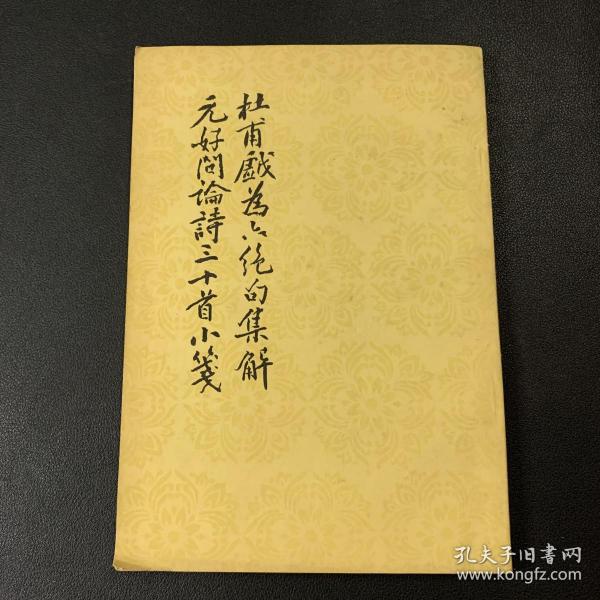 杜甫戲為六絶句集解
元好問論詩三十首小箋
孔夫子旧書网
www.kongfz.com